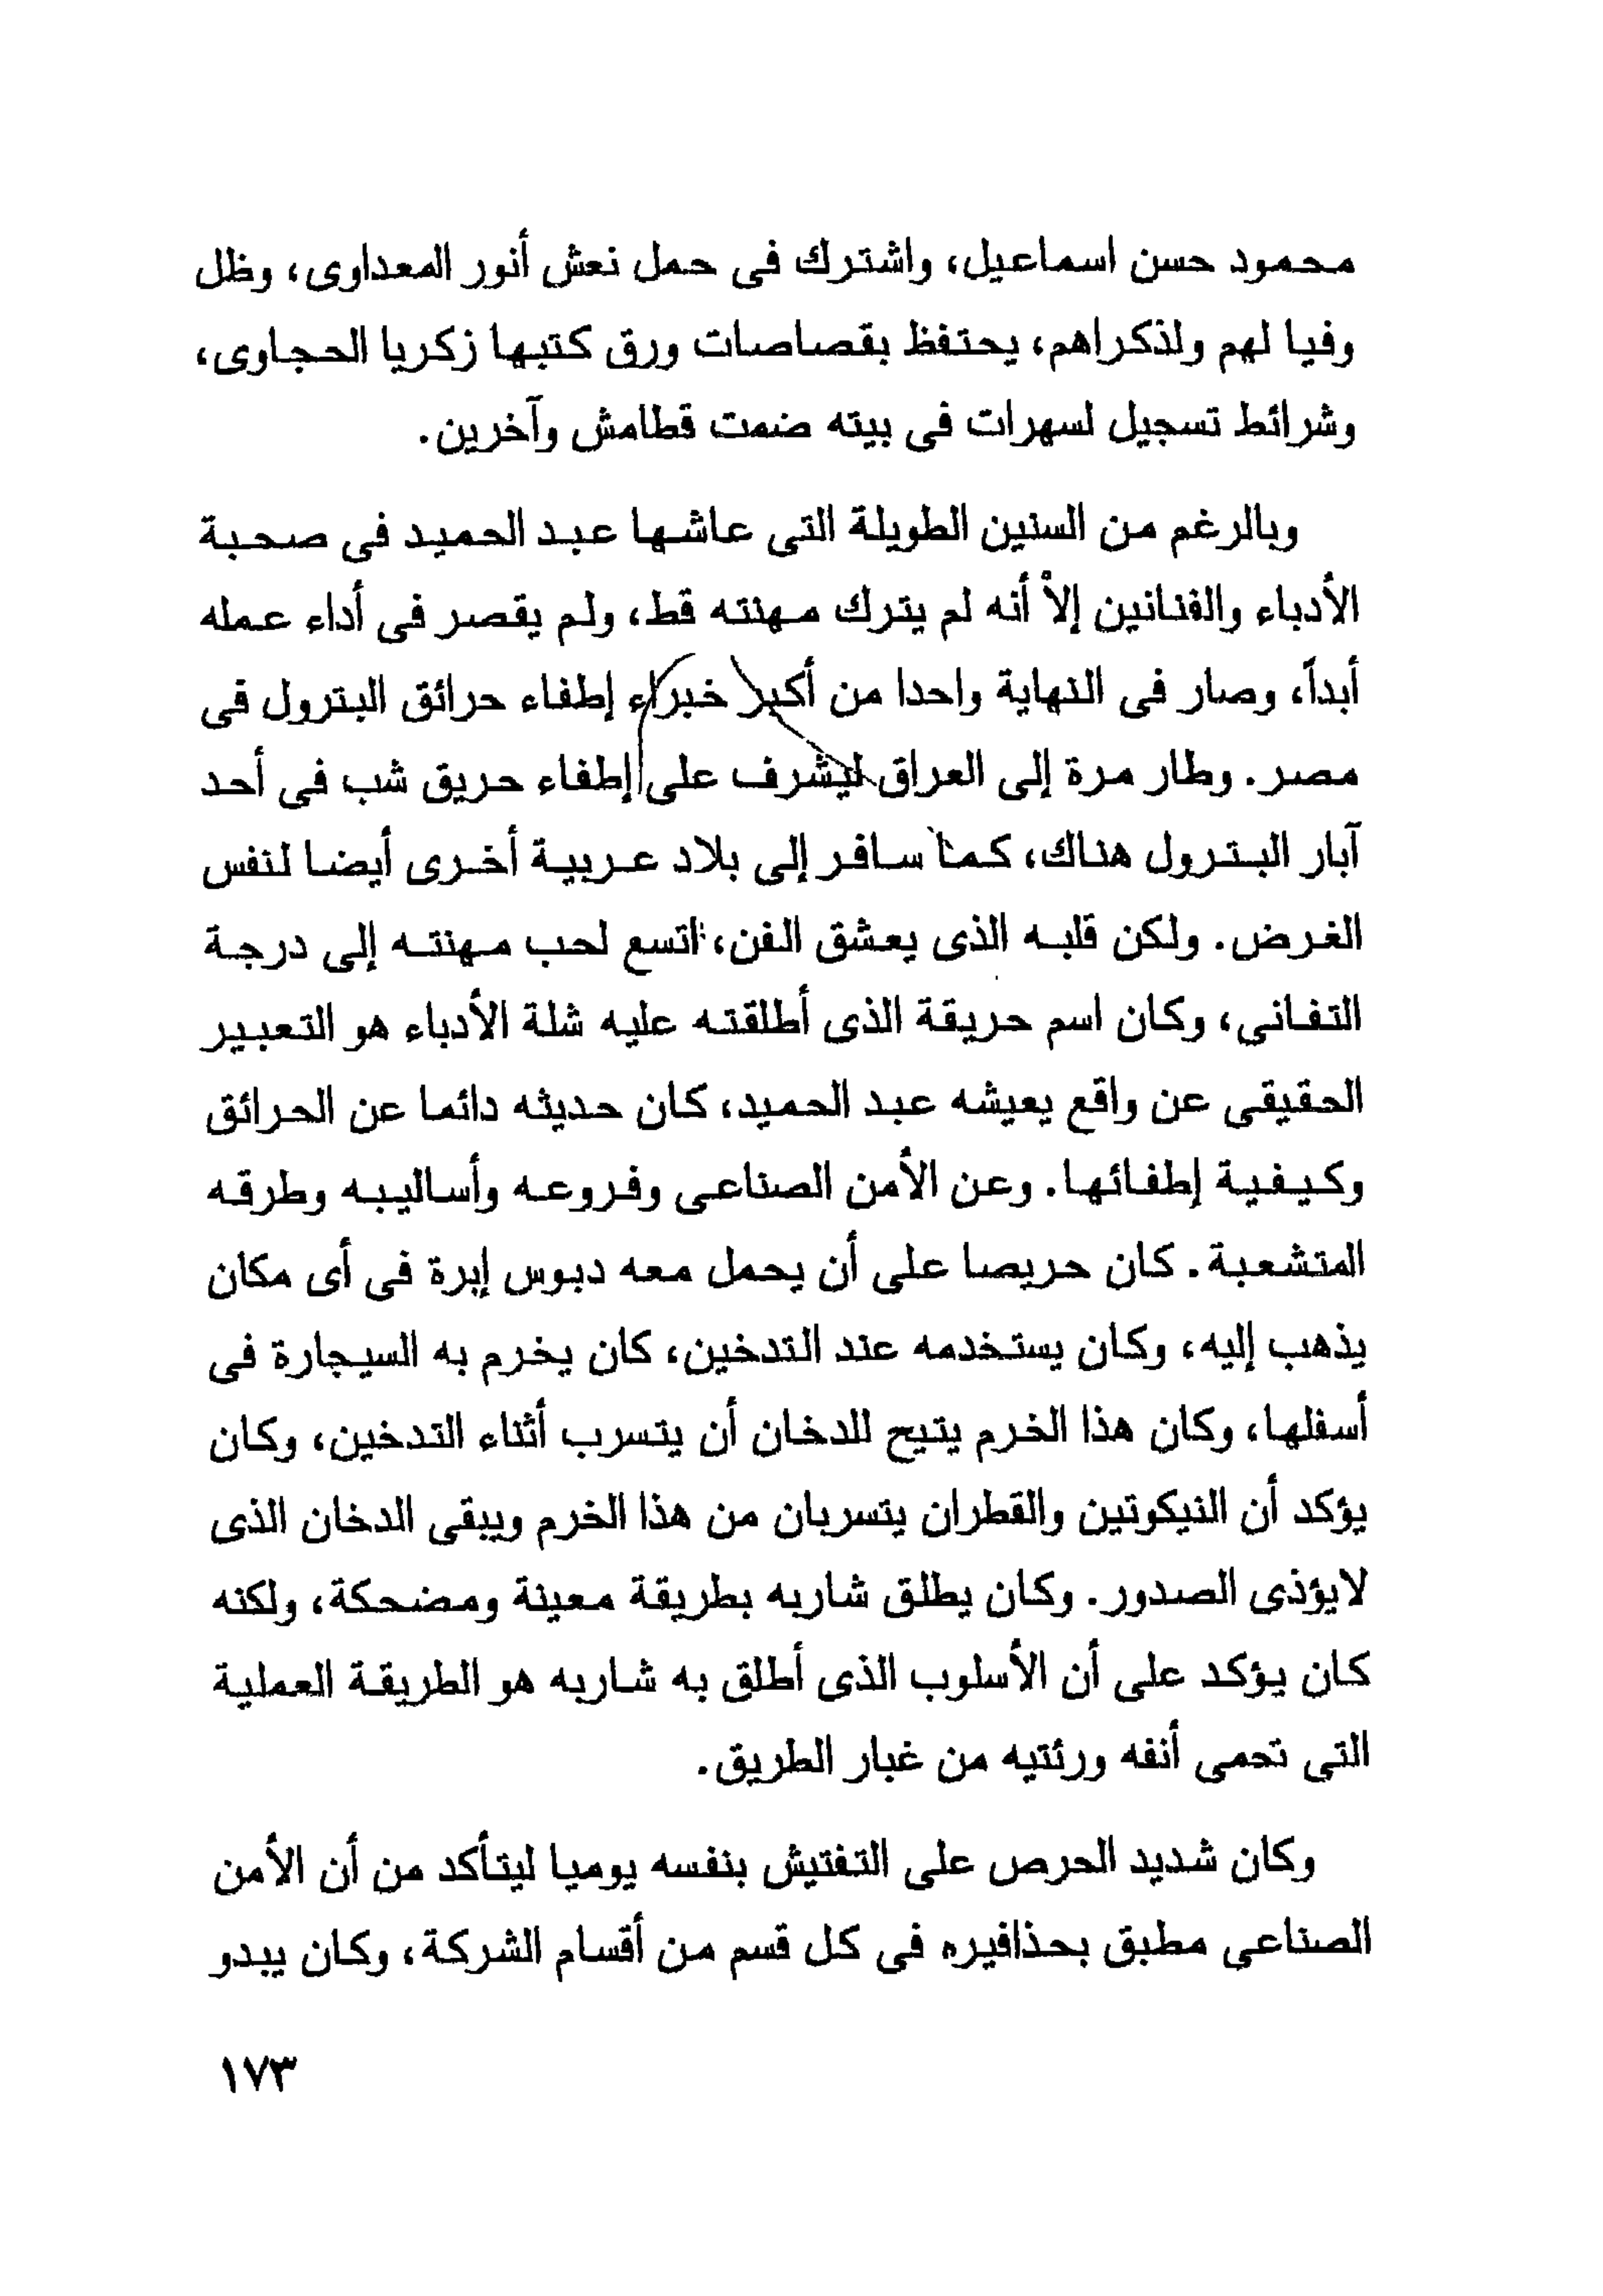 محمود حسن اسماعيل، واشترك فى حمل نعش أنور المعداوى، وظل
وفيا لهم ولذكراهم، يحتفظ بقصاصات ورق كتبها زكريا الحجاوى،
وشرائط تسجيل لسهرات فى بيته ضمت قطامش وآخرين.
وبالرغم من السنين الطويلة التى عاشها عبد الحميد فى صحبة
الأدباء والفنانين إلاْ أنه لم يترك مهنته قط، ولم يقصر فى أداء عمله
أبداً، وصار فى النهاية واحدا من أكبر خبراء إطفاء حرائق البترول فى
مصر. وطار مرة إلى العراق ليشرف على إطفاء حريق شب فى أحد
آبار البترول هناك، كما سافر إلى بلاد عربية أخرى أيضا لنفس
الغرض. ولكن قلبه الذى يعشق الفن، اتسع لحب مهنته إلى درجة
التفانى، وكان اسم حريقة الذى أطلقته عليه شلة الأدباء هو التعبير
الحقيقى عن واقع يعيشه عبد الحميد، كان حديثه دائما عن الحرائق
وكيفية إطفائها. وعن الأمن الصناعى وفروعه وأساليبه وطرقه
المتشعبة. كان حريصا على أن يحمل معه دبوس إبرة فى أى مكان
يذهب إليه، وكان يستخدمه عند التدخين، كان يخرم به السيجارة فى
أسفلها، وكان هذا الخرم يتيح للدخان أن يتسرب أثناء التدخين، وكان
يؤكد أن النيكوتين والقطران يتسربان من هذا الخرم ويبقى الدخان الذى
لايؤذى الصدور. وكان يطلق شاربه بطريقة معينة ومضحكة، ولكنه
كان يؤكد على أن الأسلوب الذى أطلق به شاربه هو الطريقة العملية
التى تحمى أنفه ورئتيه من غبار الطريق.
وكان شديد الحرص على التفتيش بنفسه يوميا ليتأكد من أن الأمن
الصناعى مطبق بحذافيره فى كل قسم من أقسام الشركة، وكان يبدو
١٧٣